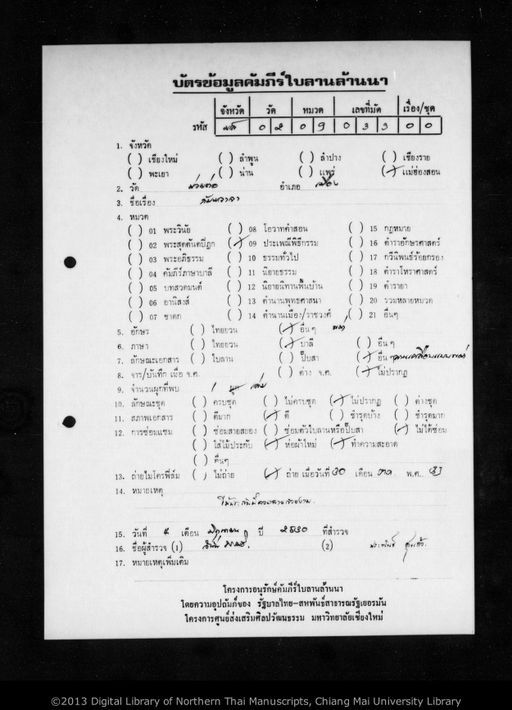 บัตรข้อมูลคัมภีร์ใบลานล้านนา
จังหวัด วัด หมวด เลขที่มัด เรื่อง/ชุด
รหัส มส 0 2 0 9 0 3 3 0 0
1. จังหวัด
( ) เชียงใหม่ ( ) ลำพูน ( ) ลำปาง ( ) เชียงราย
( ) พะเยา ( ) น่าน ( ) แพร่ (/) แม่ฮ่องสอน
2. วัด ม่วยต่อ อำเภอ เมือง
3. ชื่อเรื่อง กัมมวาจา
4. หมวด
( ) 01 พระวินัย ( ) 08 โอวาทคำสอน ( ) 15 กฎหมาย
( ) 02 พระสุตตันตปิฎก (/) 09 ประเพณีพิธีกรรม ( ) 16 ตำราอักษรศาสตร์
( ) 03 พระอภิธรรม ( ) 10 ธรรมทั่วไป ( ) 17 กวีนิพนธ์ร้อยกรอง
( ) 04 คัมภีร์ภาษาบาลี ( ) 11 นิยายธรรม ( ) 18 ตำราโหราศาสตร์
( ) 05 บทสวดมนต์ ( ) 12 นิยายนิทานพื้นบ้าน ( ) 19 ตำรายา
( ) 06 อานิสงส์ ( ) 13 ตำนานพุทธศาสนา ( ) 20 รวมหลายหมวด
( ) 07 ชาดก ( ) 14 ตำนานเมือง/ราชวงศ์ ( ) 21 อื่นๆ
5. อักษร ( ) ไทยยวน (/) อื่นๆ พม่า
6. ภาษา ( ) ไทยยวน (/) บาลี ( ) อื่นๆ
7. ลักษณะเอกสาร ( ) ใบลาน ( ) ปั๊บสา (/) อื่น
8. จาร/บันทึก เมื่อ จ.ศ. ( ) ต่าง จ.ศ. (/) ไม่ปรากฏ
9. จำนวนผูกที่พบ 1 เล่ม
10. ลักษณะชุด ( ) ครบชุด ( ) ไม่ครบชุด (/) ไม่ปรากฏ ( ) ต่างชุด
11. สภาพเอกสาร ( ) ดีมาก (/) ดี ( ) ชำรุดบ้าง ( ) ชำรุดมาก
12. การซ่อมแซม ( ) ซ่อมสายสยอง ( ) ซ่อมตัวใบลานหรือปั๊บสา (/) ไม่ได้ซ่อม
( ) ใส่ไม้ประกับ (/) ห่อผ้าใหม่ (/) ทำความสะอาด
( ) อื่นๆ
13. ถ่ายไมโครฟิล์ม ( ) ไม่ถ่าย (/) ถ่าย เมื่อวันที่ 30 เดือน ตค. พ.ศ. 31
14. หมายเหตุ
15. วันที่ 5 เดือน มิถุนายน ปี 2530 ที่สำรวจ
16. ชื่อผู้สำรวจ (1) (2)
17. หมายเหตุเพิ่มเติม
โครงการอนุรักษ์คัมภีร์ใบลานล้านนา
โดยความอุปถัมภ์ของ รัฐบาลไทย-สหพันธ์สาธารณรัฐเยอรมัน
โครงการศูนย์ส่งเสริมศิลปวัฒนธรรม มหาวิทยาลัยเชียงใหม่
©2013 Digital Library of Northern Thai Manuscripts, Chiang Mai University Library